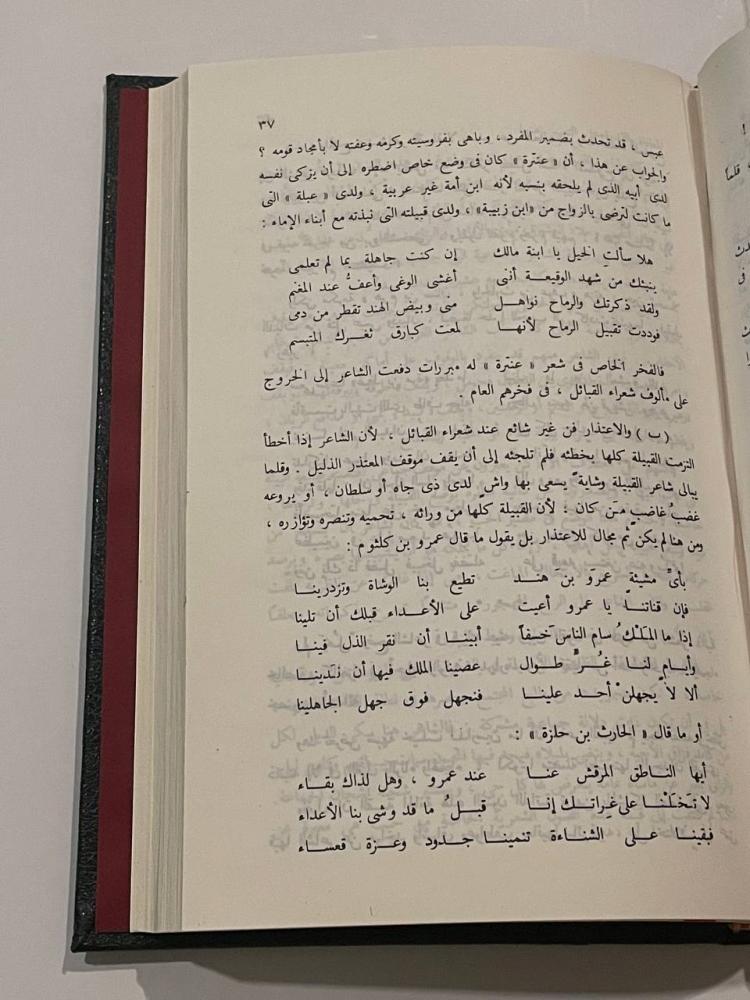 ٣٧
عبس ، قد تحدث بضمير المفرد ، وباهى بفروسيته وكرمه وعفته لا بأمجاد قومه ؟
والجواب عن هذا ، أن « عنترة » كان فى وضع خاص اضطره إلى أن يزكى نفسه
لدى أبيه الذى لم يلحقه بنسبه لأنه ابن أمة غير عربية ، ولدى « عبلة » التى
ما كانت لترضى بالزواج من « ابن زبيبة » ، ولدى قبيلته التى نبذته مع أبناء الإماء :
هلا سألتِ الخيل يا ابنة مالك إن كنت جاهلة بما لم تعلمى
ينبئك من شهد الوقيعة أننى أغشى الوغى وأعفُّ عند المغنم
ولقد ذكرتك والرماح نواهل منى وبيض الهند تقطر من دمى
فوددت تقبيل الرماح لأنها لمعت كبارق ثغرك المتبسم
فالفخر الخاص فى شعر « عنترة » له مبررات دفعت الشاعر إلى الخروج
على مألوف شعراء القبائل ، فى فخرهم العام .
( ب ) والاعتذار فن غير شائع عند شعراء القبائل ، لأن الشاعر إذا أخطأ
التزمت القبيلة كلها بخطئه فلم تلجئه إلى أن يقف موقف المعتذر الذليل . وقلما
يبالى شاعر القبيلة وشاية يسعى بها واش لدى ذى جاه أو سلطان ، أو يروعه
غضبُ غاضبٍ من كان : لأن القبيلة كلَّها من ورائه ، تحميه وتنصره وتؤازره ،
ومن هنا لم يكن ثَم مجال للاعتذار بل يقول ما قال عمرو بن كلثوم :
بأىِّ مشيئة عمرَو بنَ هند تطيع بنا الوشاة وتزدرينا
فإن قناتنا يا عمرو أعيت على الأعداء قبلك أن تلينا
إذا ما المَلْكُ سام الناسَ خسفاً أبينا أن نقر الذل فينا
وأيام لنا غُرٍّ طوال عصينا الملك فيها أن نَدينا
ألا لا يجهلنْ أحد علينا فنجهل فوق جهل الجاهلينا
أو ما قال « الحارث بن حلزة » :
أيها الناطق المرقش عنا عند عمرو ، وهل لذاك بقاء
لا تَخَلْنا على غِراتك إنا قبلُ ما قد وشى بنا الأعداء
فبقينا على الشناءة تنمينا جدود وعزة قعساء